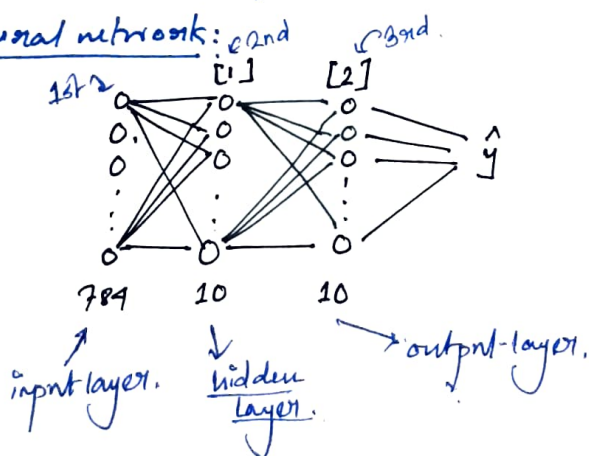 ural network:
2nd
3rd.
[1]
[2]
1st
ŷ
784 10 10
input layer.
hidden
layer.
output-layer.